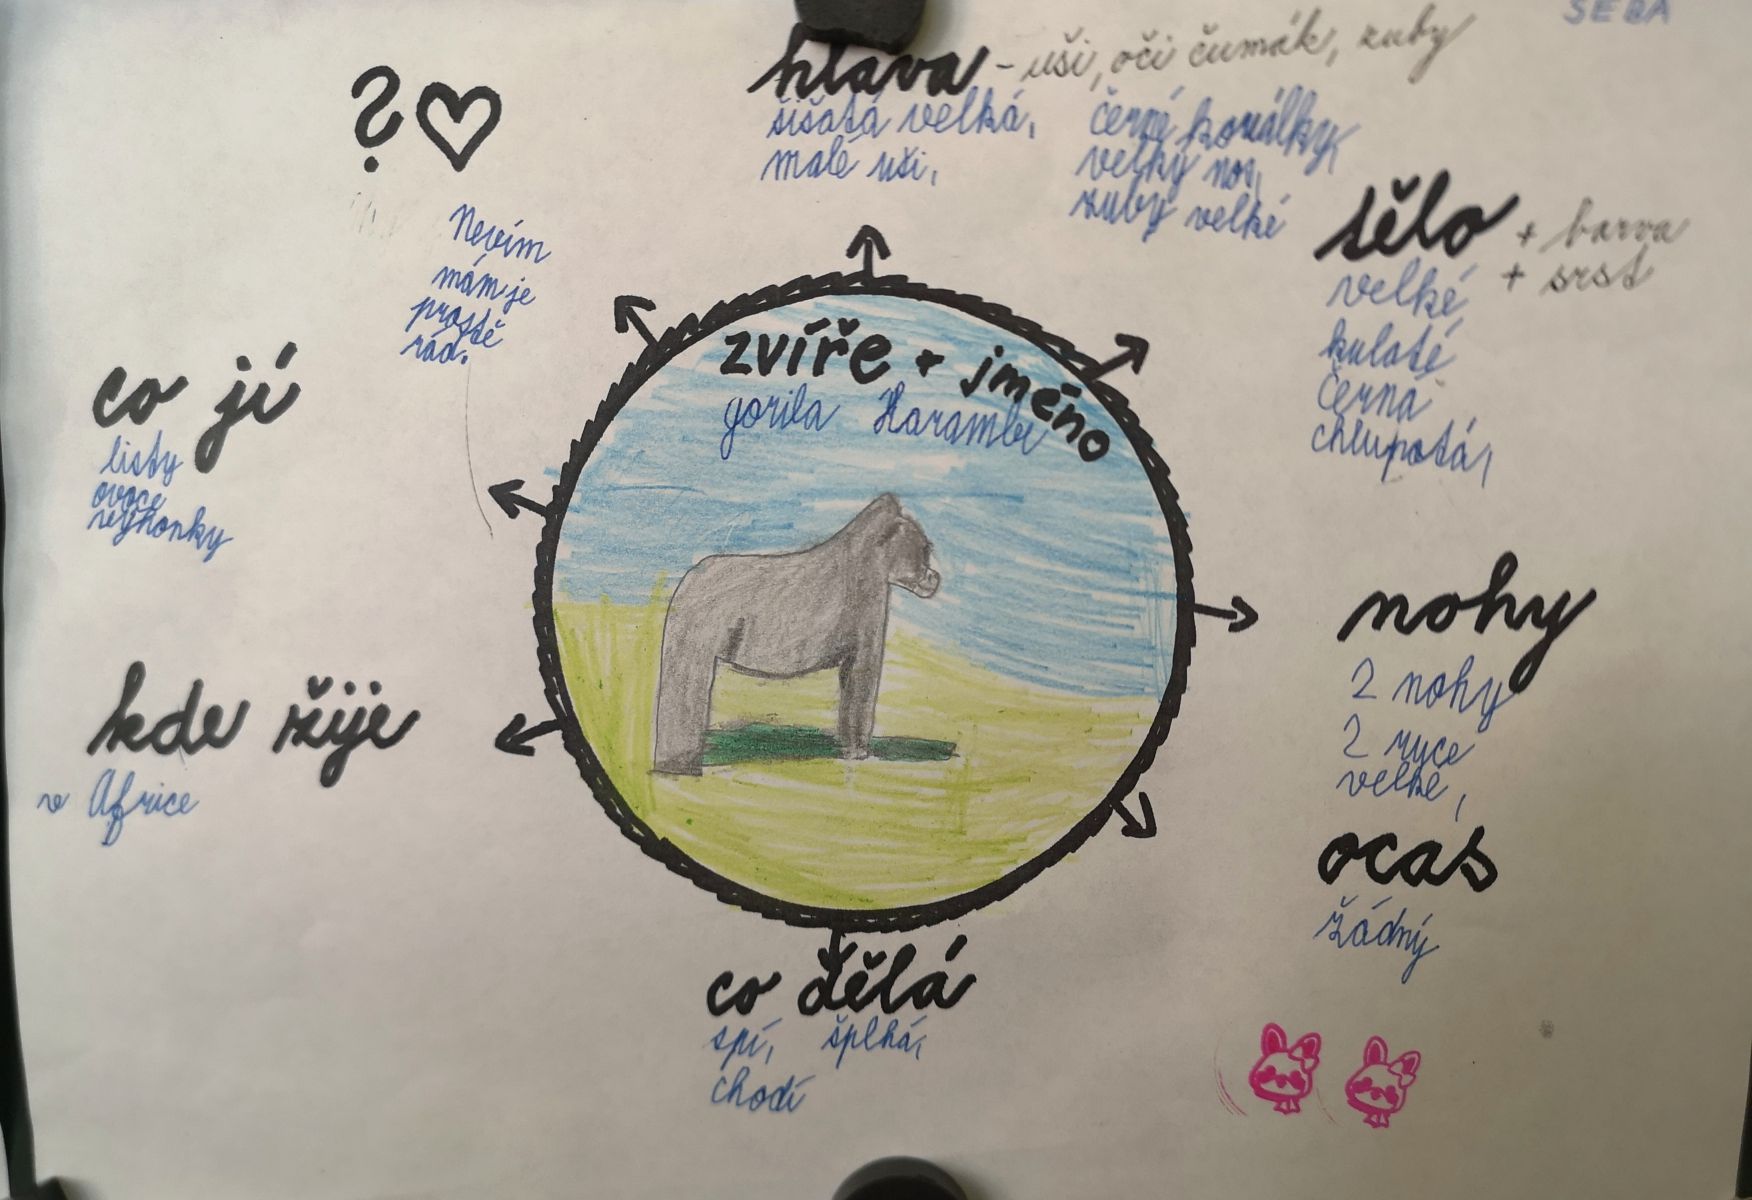 SEBA
hlava - uši, oči čumák, zuby
šišatá velká,
malé uši,
černé korálky,
velký nos,
zuby velké
? ♡
Nevím
mám je
prostě
rád.
tělo + barva
+ srst
velké
kulaté
Černá
chlupatá,
zvíře + jméno
gorila Harambe
co jí
listy
ovoce
výhonky
nohy
2 nohy
2 ruce
velké,
kde žije
v Africe
ocas
žádný
co dělá
spí, šplhá,
chodí